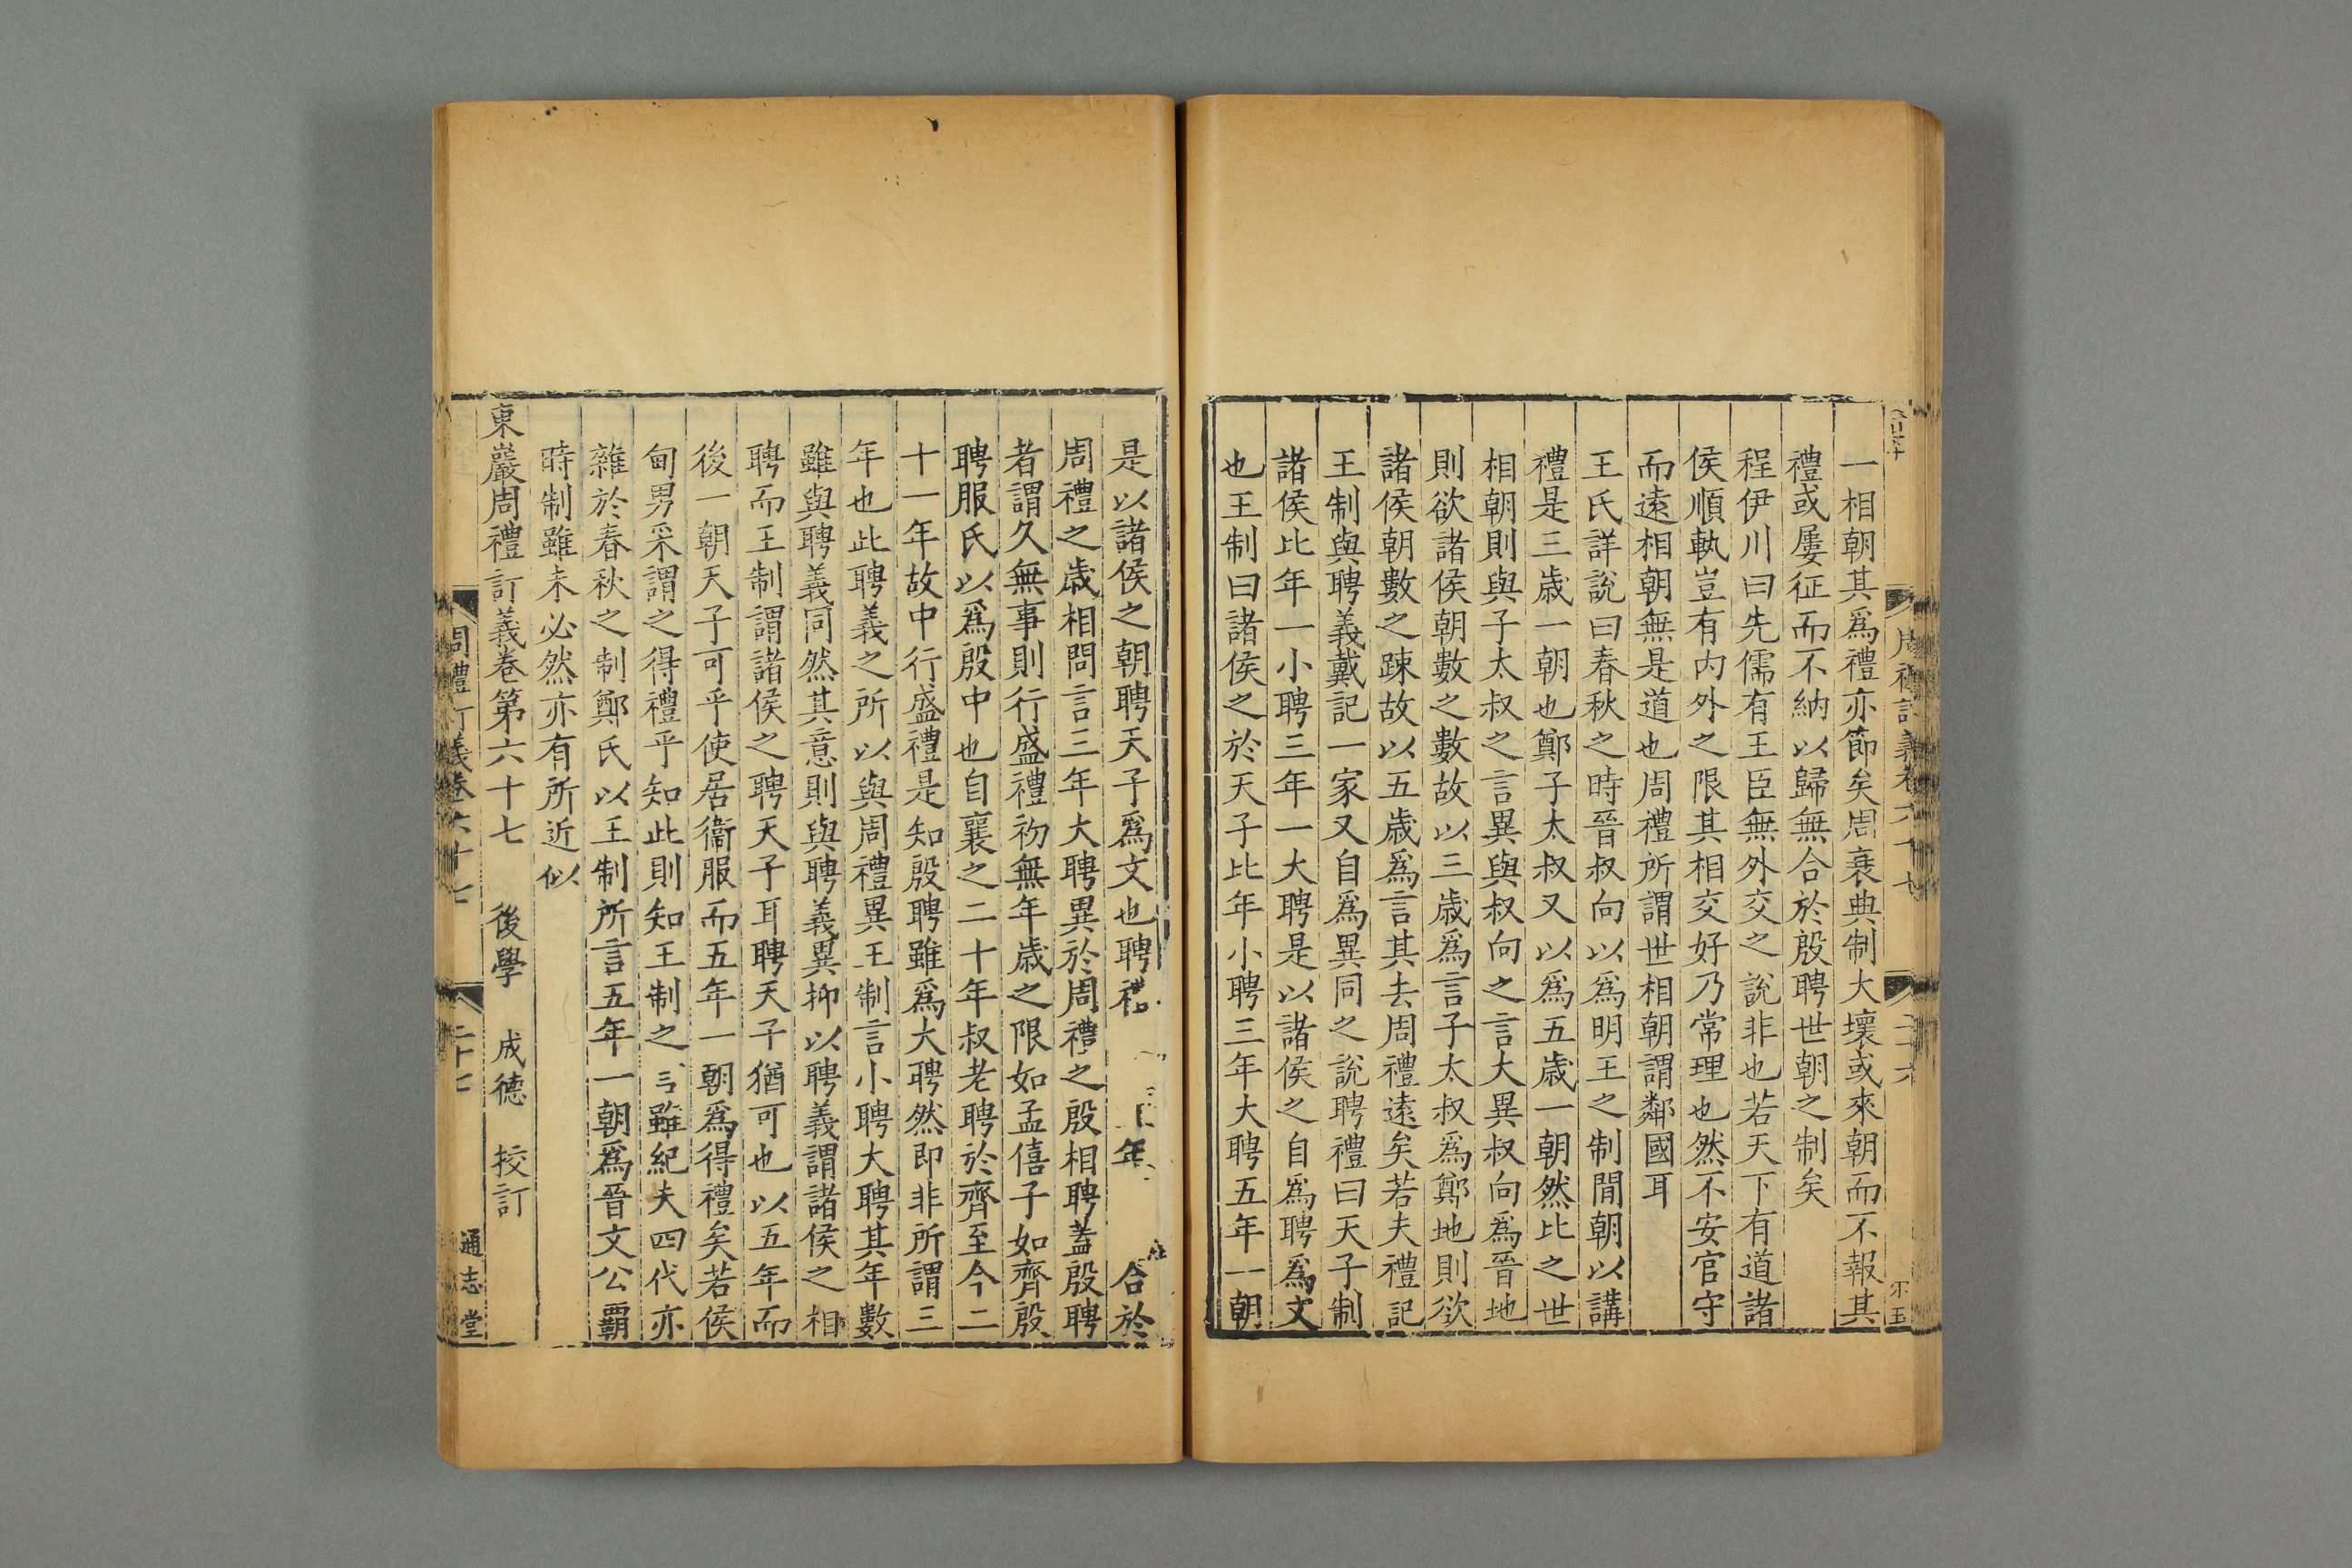 一相朝其爲禮亦節矣周衰典制大壞或來朝而不報其
禮或屢征而不納以歸無合於殷聘世朝之制矣
程伊川曰先儒有王臣無外交之說非也若天下有道諸
侯順軌豈有內外之限其相交好乃常理也然不安官守
而遠相朝無是道也周禮所謂世相朝謂鄰國耳
王氏詳說曰春秋之時晉叔向以爲明王之制間朝以講
禮是三歲一朝也鄭子太叔又以爲五歲一朝然比之世
相朝則與子太叔之言異與叔向之言大異叔向爲晉地
則欲諸侯朝數之數故以三歲爲言子太叔爲鄭地則欲
諸侯朝數之踈故以五歲爲言其去周禮遠矣若夫禮記
王制與聘義戴記一家又自爲異同之說聘禮曰天子制
諸侯比年一小聘三年一大聘是以諸侯之自爲聘爲文
也王制曰諸侯之於天子比年小聘三年大聘五年一朝
是以諸侯之朝聘天子爲文也聘禮年合於
周禮之歲相問言三年大聘異於周禮之殷相聘蓋殷聘
者謂久無事則行盛禮初無年歲之限如孟僖子如齊殷
聘服氏以爲殷中也自襄之二十年叔老聘於齊至今二
十一年故中行盛禮是知殷聘雖爲大聘然即非所謂三
年也此聘義之所以與周禮異王制言小聘大聘其年數
雖與聘義同然其意則與聘義異抑以聘義謂諸侯之相
聘而王制謂諸侯之聘天子耳聘天子猶可也以五年而
後一朝天子可乎使居衞服而五年一朝爲得禮矣若侯
甸男采謂之得禮乎知此則知王制之言雖紀夫四代亦
雜於春秋之制鄭氏以王制所言五年一朝爲晉文公霸
時制雖未必然亦有所近似
東巖周禮訂義卷第六十七 後學 成德 挍訂
周禮訂義卷六十七 二十七 通志堂